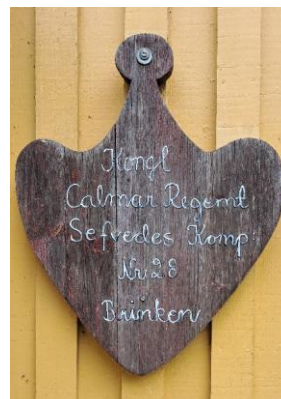 Kongl
Calmar Regemt
Sefvedes Komp
Nr 28
Brinken